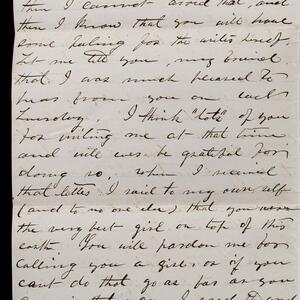 then I cannot avoid that, and
then I know that you will have
some feeling for the writer himself.
Let me tell you, my friend
that I was much pleased to
hear from you on last
Tuesday. I think "lots" of you
for writing me at that time
and will ever be grateful for
doing so. When I received
that letter I said to my own self
(and to no one else) that you were
the very best girl on top of this
earth. You will pardon me for
calling you a girl or if you
cant do that go as far as you